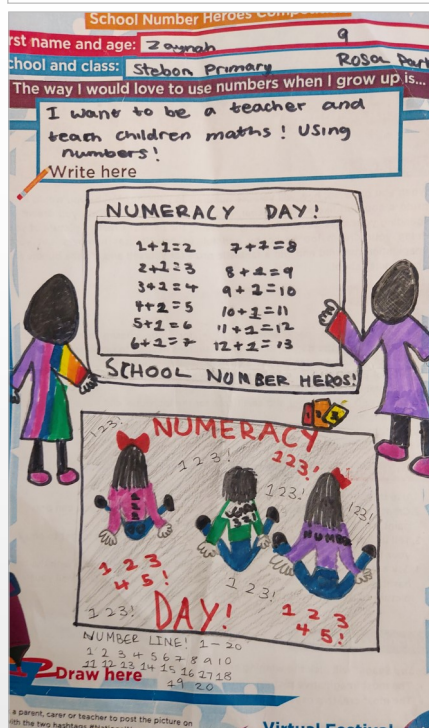 School Number Heroes
rst name and age: Zaynah 9
chool and class: Stebon Primary Rosa Park
The way I would love to use numbers when I grow up is...
I want to be a teacher and
teach children maths! Using
numbers!
Write here
NUMERACY DAY!
1+1=2 7+7=8
2+1=3 8+1=9
3+1=4 9+1=10
4+1=5 10+1=11
5+1=6 11+1=12
6+1=7 12+1=13
SCHOOL NUMBER HEROS!
123!
NUMERACY
123!
123!
123!
123!
NUMB
1 2 3
4 5!
123!
123!
DAY!
1 2 3
4 5!
NUMBER LINE! 1-20
1 2 3 4 5 6 7 8 9 10
11 12 13 14 15 16 17 18
19 20
Draw here
a parent, carer or teacher to post the picture on
ith the two hashtags
Virtual Festival